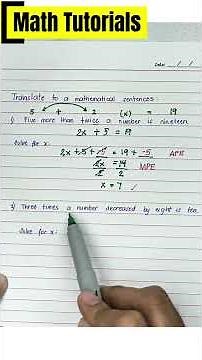 Math Tutorials
Date: __/__/__
Translate to a mathematical sentences:
5 + 2 (x) = 19
1) Five more than twice a number is nineteen
2x + 5 = 19
Solve for x:
2x + 5 + -5 = 19 + -5 APE
2x = 14 MPE
2 2
x = 7
2) Three times a number decreased by eight is ten
Solve for x: